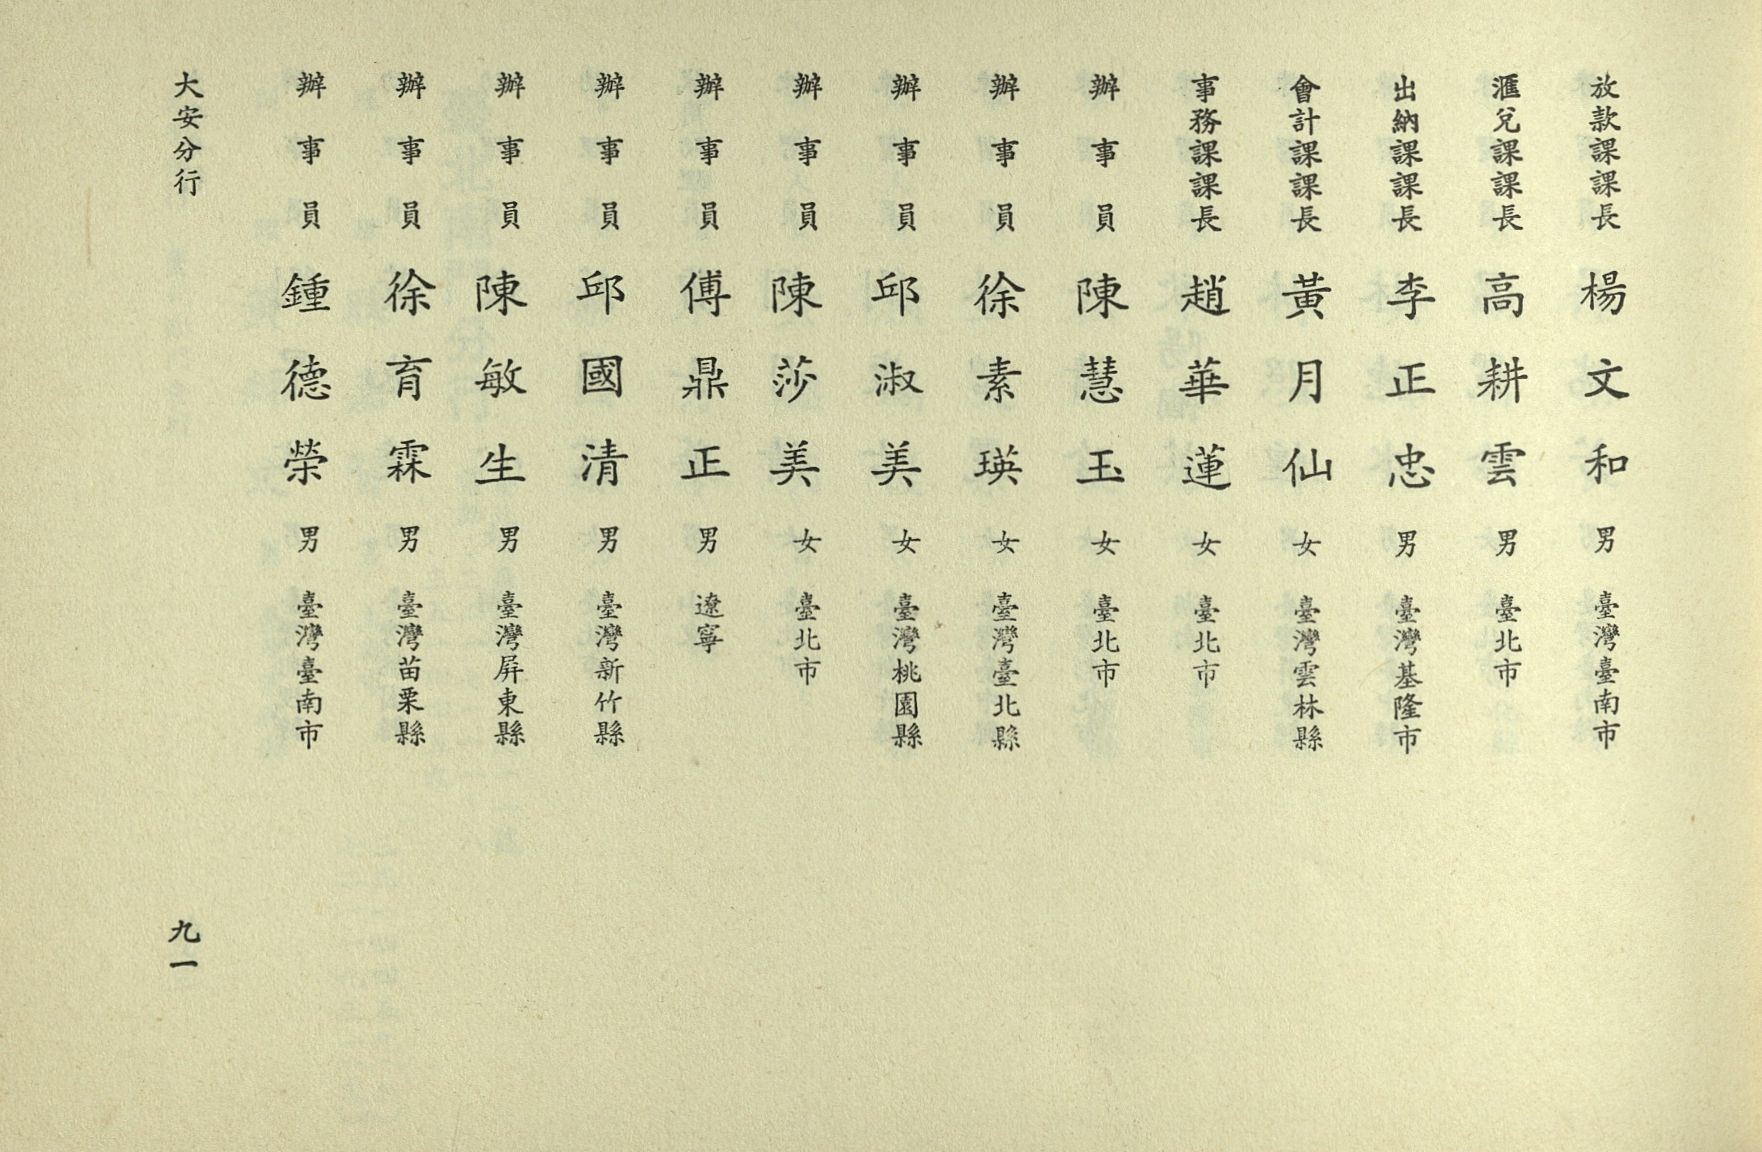 放款課課長 楊文和 男 臺灣臺南市
滙兌課課長 高耕雲 男 臺北市
出納課課長 李正忠 男 臺灣基隆市
會計課課長 黃月仙 女 臺灣雲林縣
事務課課長 趙華蓮 女 臺北市
辦事員 陳慧玉 女 臺北市
辦事員 徐素瑛 女 臺灣臺北縣
辦事員 邱淑美 女 臺灣桃園縣
辦事員 陳莎美 女 臺北市
辦事員 傅鼎正 男 遼寧
辦事員 邱國清 男 臺灣新竹縣
辦事員 陳敏生 男 臺灣屏東縣
辦事員 徐育霖 男 臺灣苗栗縣
辦事員 鍾德榮 男 臺灣臺南市
大安分行
九一